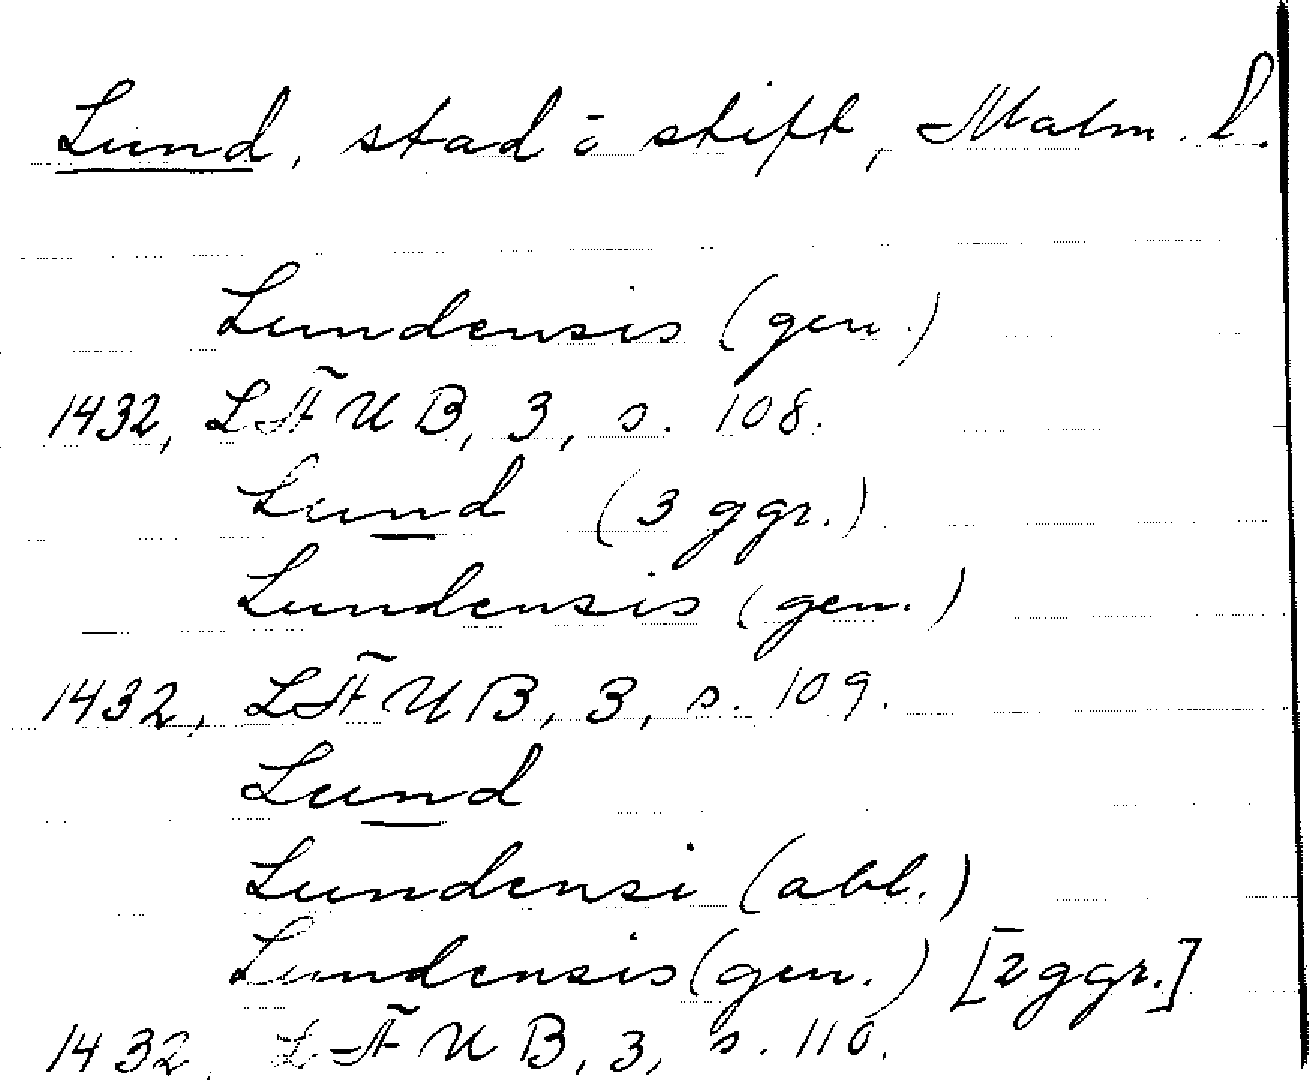 Lund, stad o stift, Malm. l.
Lundensis (gen.)
1432, LFUB, 3, s. 108.
Lund (3 ggr.)
Lundensis (gen.)
1432, LFUB, 3, s. 109.
Lund
Lundensi (abl.)
Lundensis (gen.) [2 ggr.]
1432, LFUB, 3, s. 110.